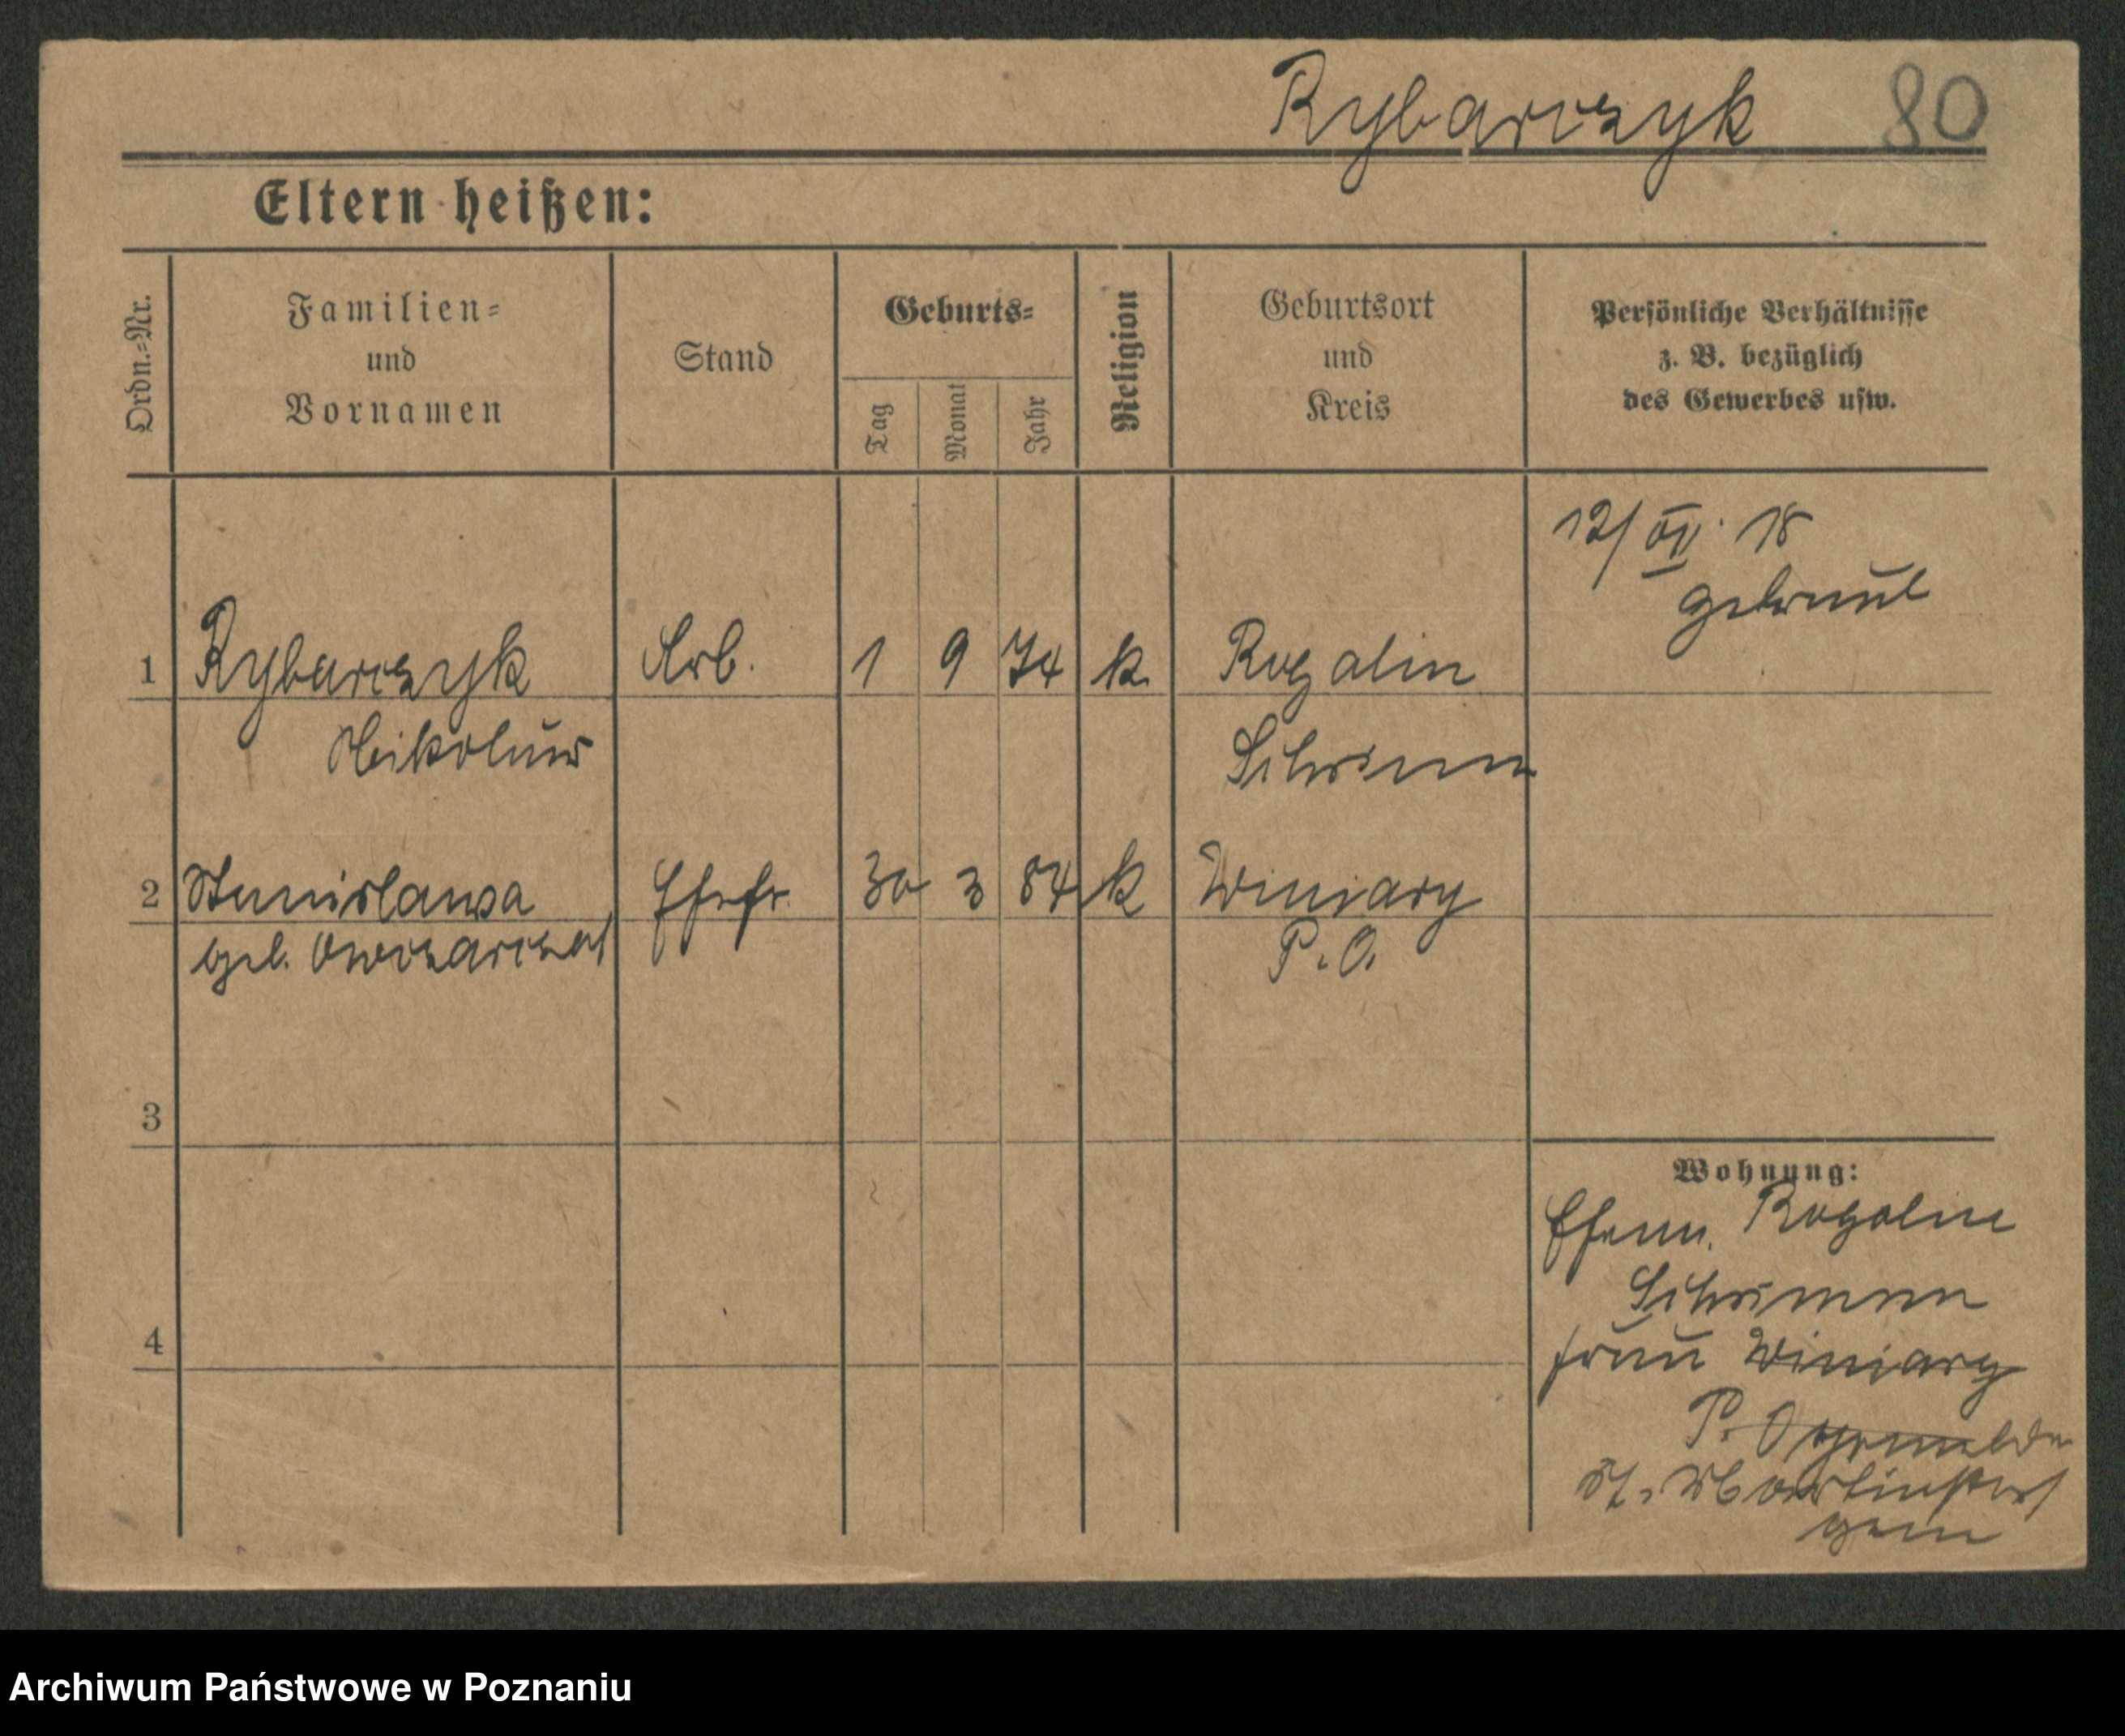 Rybarczyk 80
Eltern heißen:
Ordn.=Nr.
Familien=
und
Vornamen
Stand
Geburts=
Tag
Monat
Jahr
Religion
Geburtsort
und
Kreis
Persönliche Verhältnisse
z. B. bezüglich
des Gewerbes usw.
12/XI. 18
getraut
1 Rybarczyk Arb. 1 9 74 k. Rogalin
Nikolaus Schrimm
2 Stanislawa Ehefr. 30 3 84 k Winiary
geb. Owczarczak P. O.
3
4
Wohnung:
Ehem. Rogalin
Schrimm
frau Winiary
P. O
St. Martinstr
Archiwum Państwowe w Poznaniu